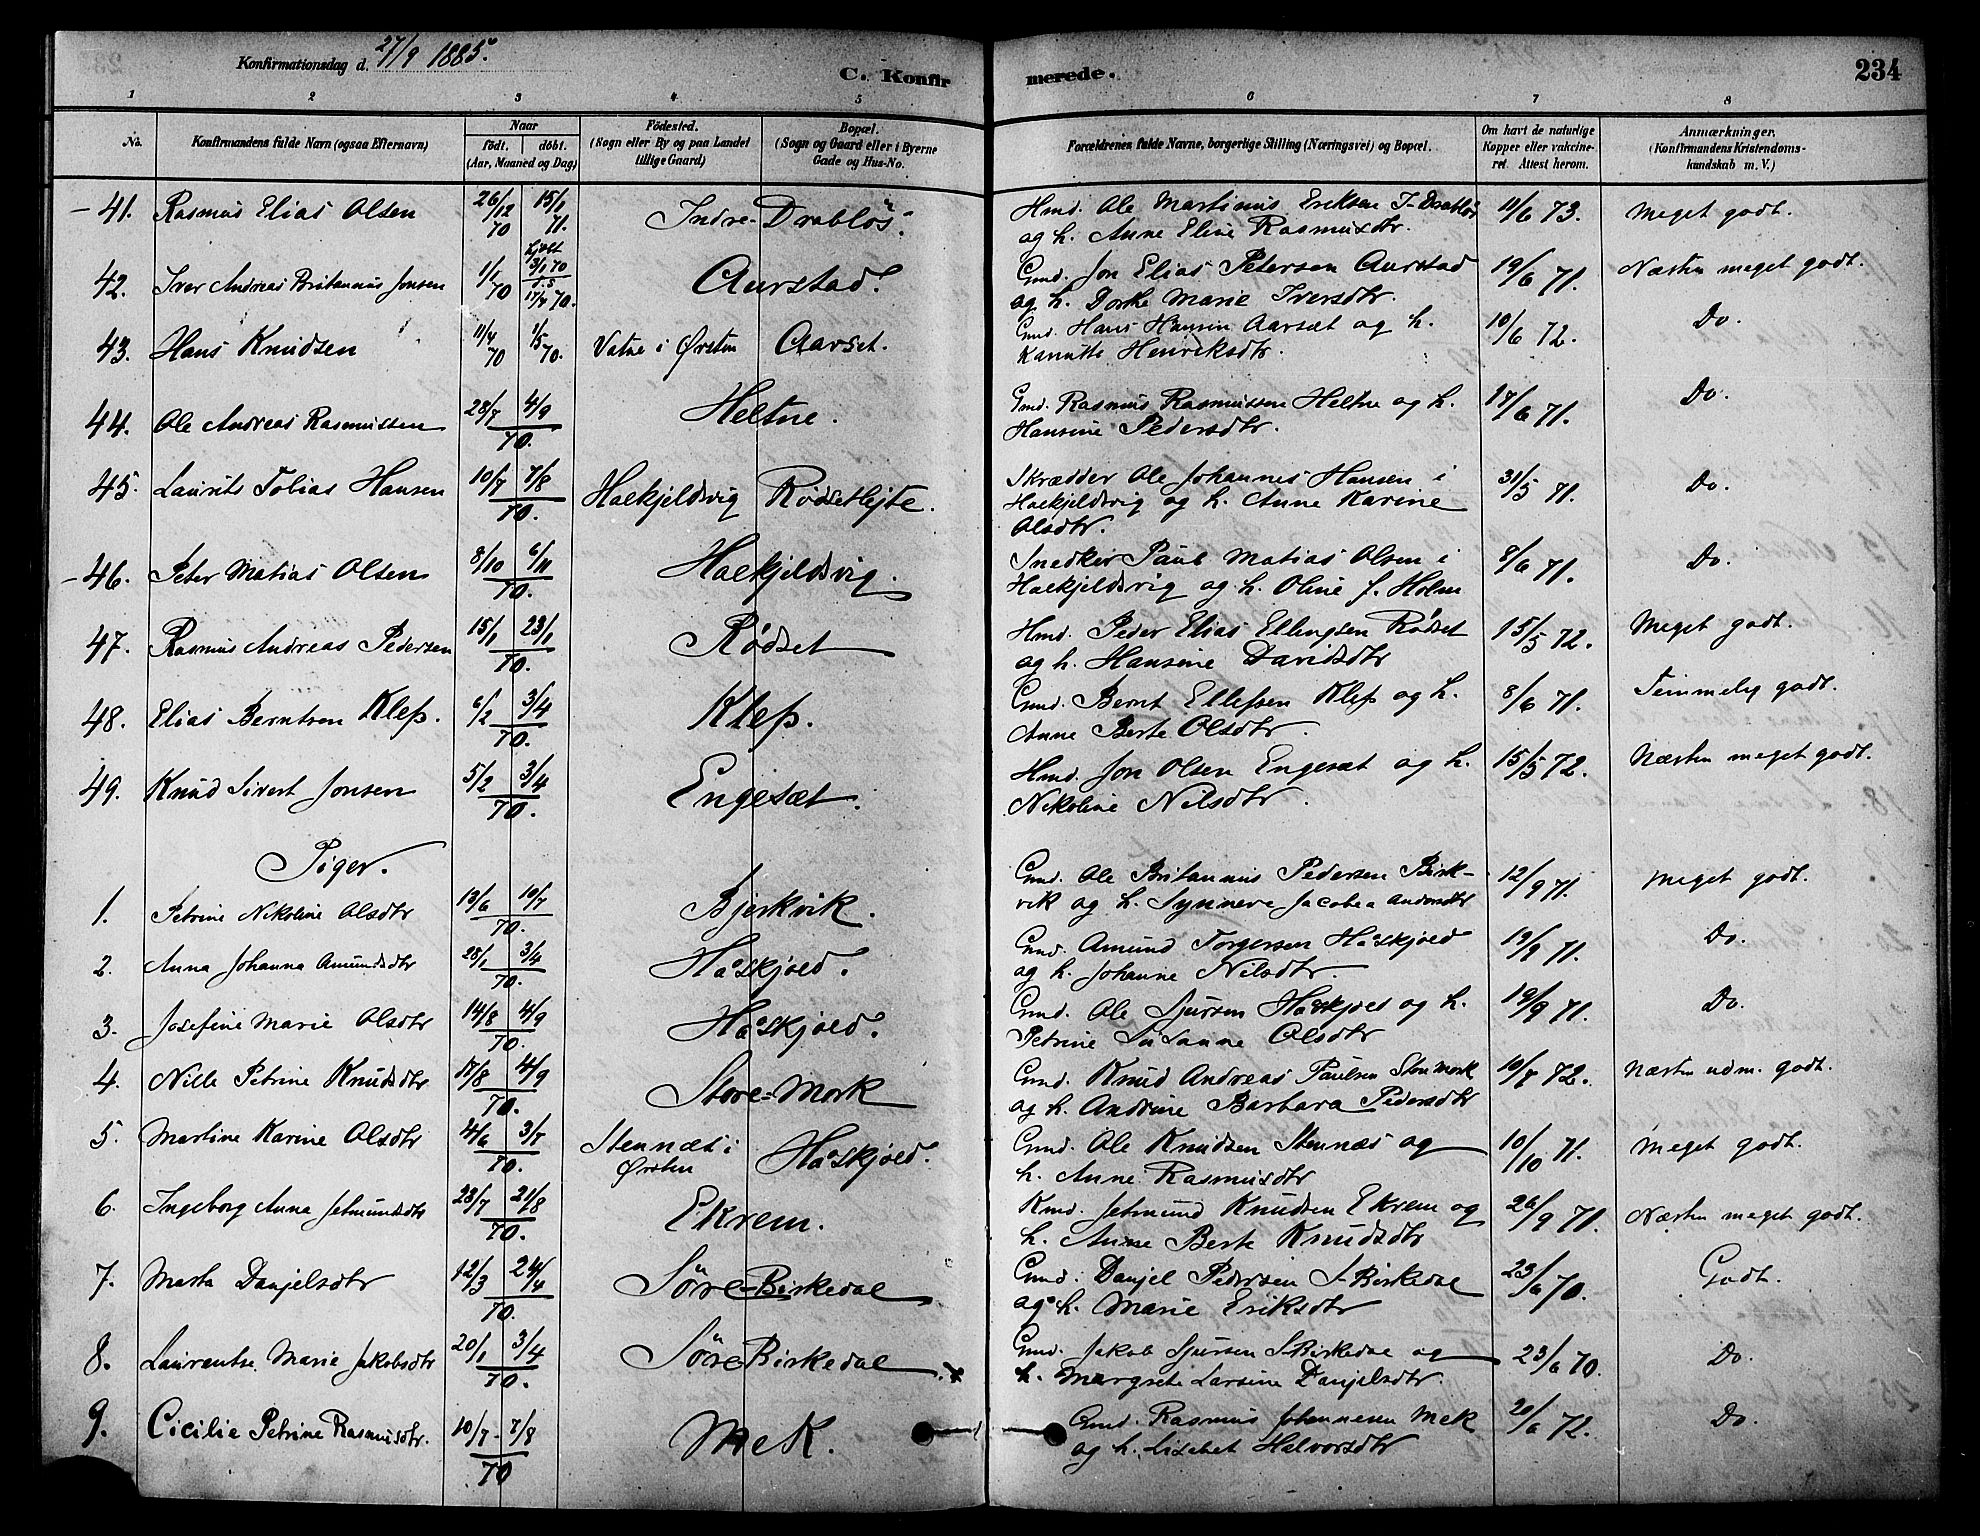 Konfirmationsdag d. 27/9 1885.
C. Konfirmerede.
234
1 2 3 4 5 6 7 8
No.
Konfirmandens fulde Navn (ogsaa Efternavn)
Naar
födt. döbt.
(Aar, Maaned og Dag)
Födested.
(Sogn eller By og paa Landet
tillige Gaard)
Bopæl.
(Sogn og Gaard eller i Byerne
Gade og Hus-No.
Forældrenes fulde Navne, borgerlige Stilling (Næringsvei) og Bopæl.
Om havt de naturlige
Kopper eller vakcine-
ret. Attest herom.
Anmærkninger.
(Konfirmandens Kristendoms-
kundskab m. V.)
41. Rasmus Elias Olsen 26/12 70 15/1 71. Indre-Drabløs. Hmd. Ole Martinus Eriksen I-Drabløs 11/6 73. Meget godt.
og h. Anne Eline Rasmusdtr.
42. Iver Andreas Britannus Jonsen 1/1 70 3/1 70 17/4 70. Aurstad. Gmd. Jon Elias Petersen Aurstad 19/6 71. Næsten meget godt.
og h. Dorthe Marie Iversdtr.
43. Hans Knudsen 11/4 70 1/5 70. Vatne i Ørsten Aarset. Gmd. Hans Hansen Aarsæt og h. 10/6 72. Do.
Kanutte Henriksdtr.
44. Ole Andreas Rasmussen 28/7 4/9 70. Heltne. Gmd. Rasmus Rasmussen Heltne og h. 17/6 71. Do.
Hansine Pedersdtr.
45. Laurits Tobias Hansen 10/7 7/8 70. Haekjeldsvig Rødsethejte. Skrædder Ole Johannes Hansen i 31/5 71. Do.
Haekjeldsvig og h. Anne Karine
Olsdtr.
46. Peter Matias Olsen 8/10 6/11 70. Haekjeldsvig. Snedker Paul Matias Olsen i 8/6 71. Do.
Haekjeldsvig og h. Oline f. Holm
47. Rasmus Andreas Pedersen 15/1 23/1 70. Rødset Hmd. Peder Elias Ellingsen Rødset 15/5 72. Meget godt.
og h. Hansine Davidsdtr
48. Elias Berntsen Klep. 6/2 3/4 70. Klep. Gmd. Bernt Ellefsen Klep og h. 8/6 71. Temmelig godt.
Anne Berte Olsdtr.
49. Knud Sivert Jonsen 5/2 3/4 70. Engesæt. Hmd. Jon Olsen Engesæt og h. 15/5 72. Næsten meget godt.
Nikoline Nilsdtr.
Piger.
1. Petrine Nikoline Olsdtr 13/6 10/7 70. Bjerkvik. Gmd. Ole Britannus Pedersen Birk- 12/9 71. Meget godt.
vik og h. Synneve Jacobea Andersdtr
2. Anna Johanna Amundsdtr 28/1 3/4 70. Haaskjold. Gmd. Amund Torgersen Haaskjold 19/9 71. Do.
og h. Johanne Nilsdtr.
3. Josefine Marie Olsdtr 14/8 4/9 70. Haaskjold. Gmd. Ole Sjursen Haaskjold og h. 19/9 71. Do.
Petrine Susanne Olsdtr
4. Nille Petrine Knudsdtr 17/8 4/9 70. Store-Mork Gmd. Knud Andreas Paulsen Storemork 10/7 72. Næsten udm. godt.
og h. Andrine Barbara Pedersdtr
5. Martine Karine Olsdtr 4/6 3/7 70. Stennæs i Ørsten Haaskjold. Gmd. Ole Knudsen Stennæs og 10/10 71. Meget godt.
h. Anne Rasmusdtr
6. Ingeborg Anna Jetmundsdtr 23/7 21/8 70. Ekrem. Kmd. Jetmund Knudsen Ekrem og 26/9 71. Næsten meget godt.
h. Anne Berte Knudsdtr
7. Marta Danjelsdtr 12/3 24/4 70. Søre-Birkedal Gmd. Danjel Pedersen S-Birkedal 23/6 70. Godt.
og h. Marie Eriksdtr
8. Laurentse Marie Jakobsdtr 20/1 3/4 70. Søre Birkedal Gmd. Jakob Sjursen S.Birkedal og 23/6 70. Do.
h. Margrete Larsine Danjelsdtr.
9. Cicilie Petrine Rasmusdtr. 10/7 7/8 70 Mek. Gmd. Rasmus Johannesen Mek 20/6 72. Do.
og h. Lisebet Halvorsdtr